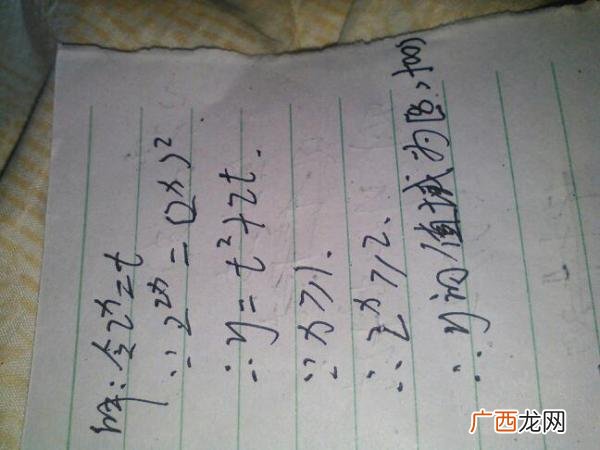 解:令2ˣ=t
∵2²ˣ=(2ˣ)²
∴y=t²+2t.
∵x≥1.
∴2ˣ≥2.
∴y的值域为[8,+∞)
广西龙网